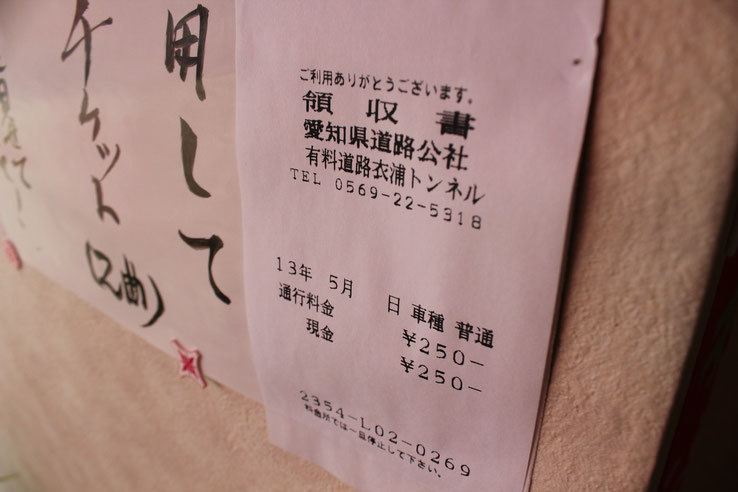 用して
チケット
ご利用ありがとうございます。
領収書
愛知県道路公社
有料道路衣浦トンネル
TEL 0569-22-5318
13年 5月 日 車種 普通
通行料金 ¥250-
現金 ¥250-
2354-L02-0269
料金所では一旦停止して下さい。